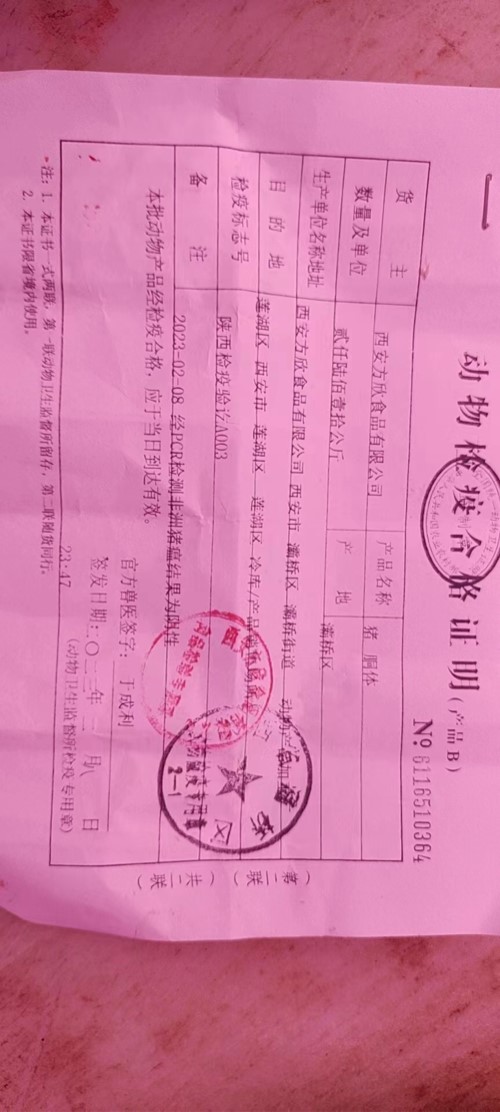 动物检疫合格证明(产品B)
№ 6116510364
货主 西安方欣食品有限公司 产品名称 猪 胴体
数量及单位 贰仟陆佰壹拾公斤 产地 灞桥区
生产单位名称地址 西安方欣食品有限公司 西安市 灞桥区 灞桥街道
目的地 莲湖区 西安市 莲湖区 莲湖区 冷库/产品
检疫标志号 陕西检疫验讫A003
备注 2023-02-08 经PCR检测非洲猪瘟结果为阴性
本批动物产品经检疫合格,应于当日到达有效。
官方兽医签字:于成利
签发日期:二〇二三年 二 月八 日
23:47 (动物卫生监督所检疫专用章)
注:1. 本证书一式两联,第一联动物卫生监督所留存,第二联随货同行。
2. 本证书限省境内使用。
(第二联)
(共二联)
2-1